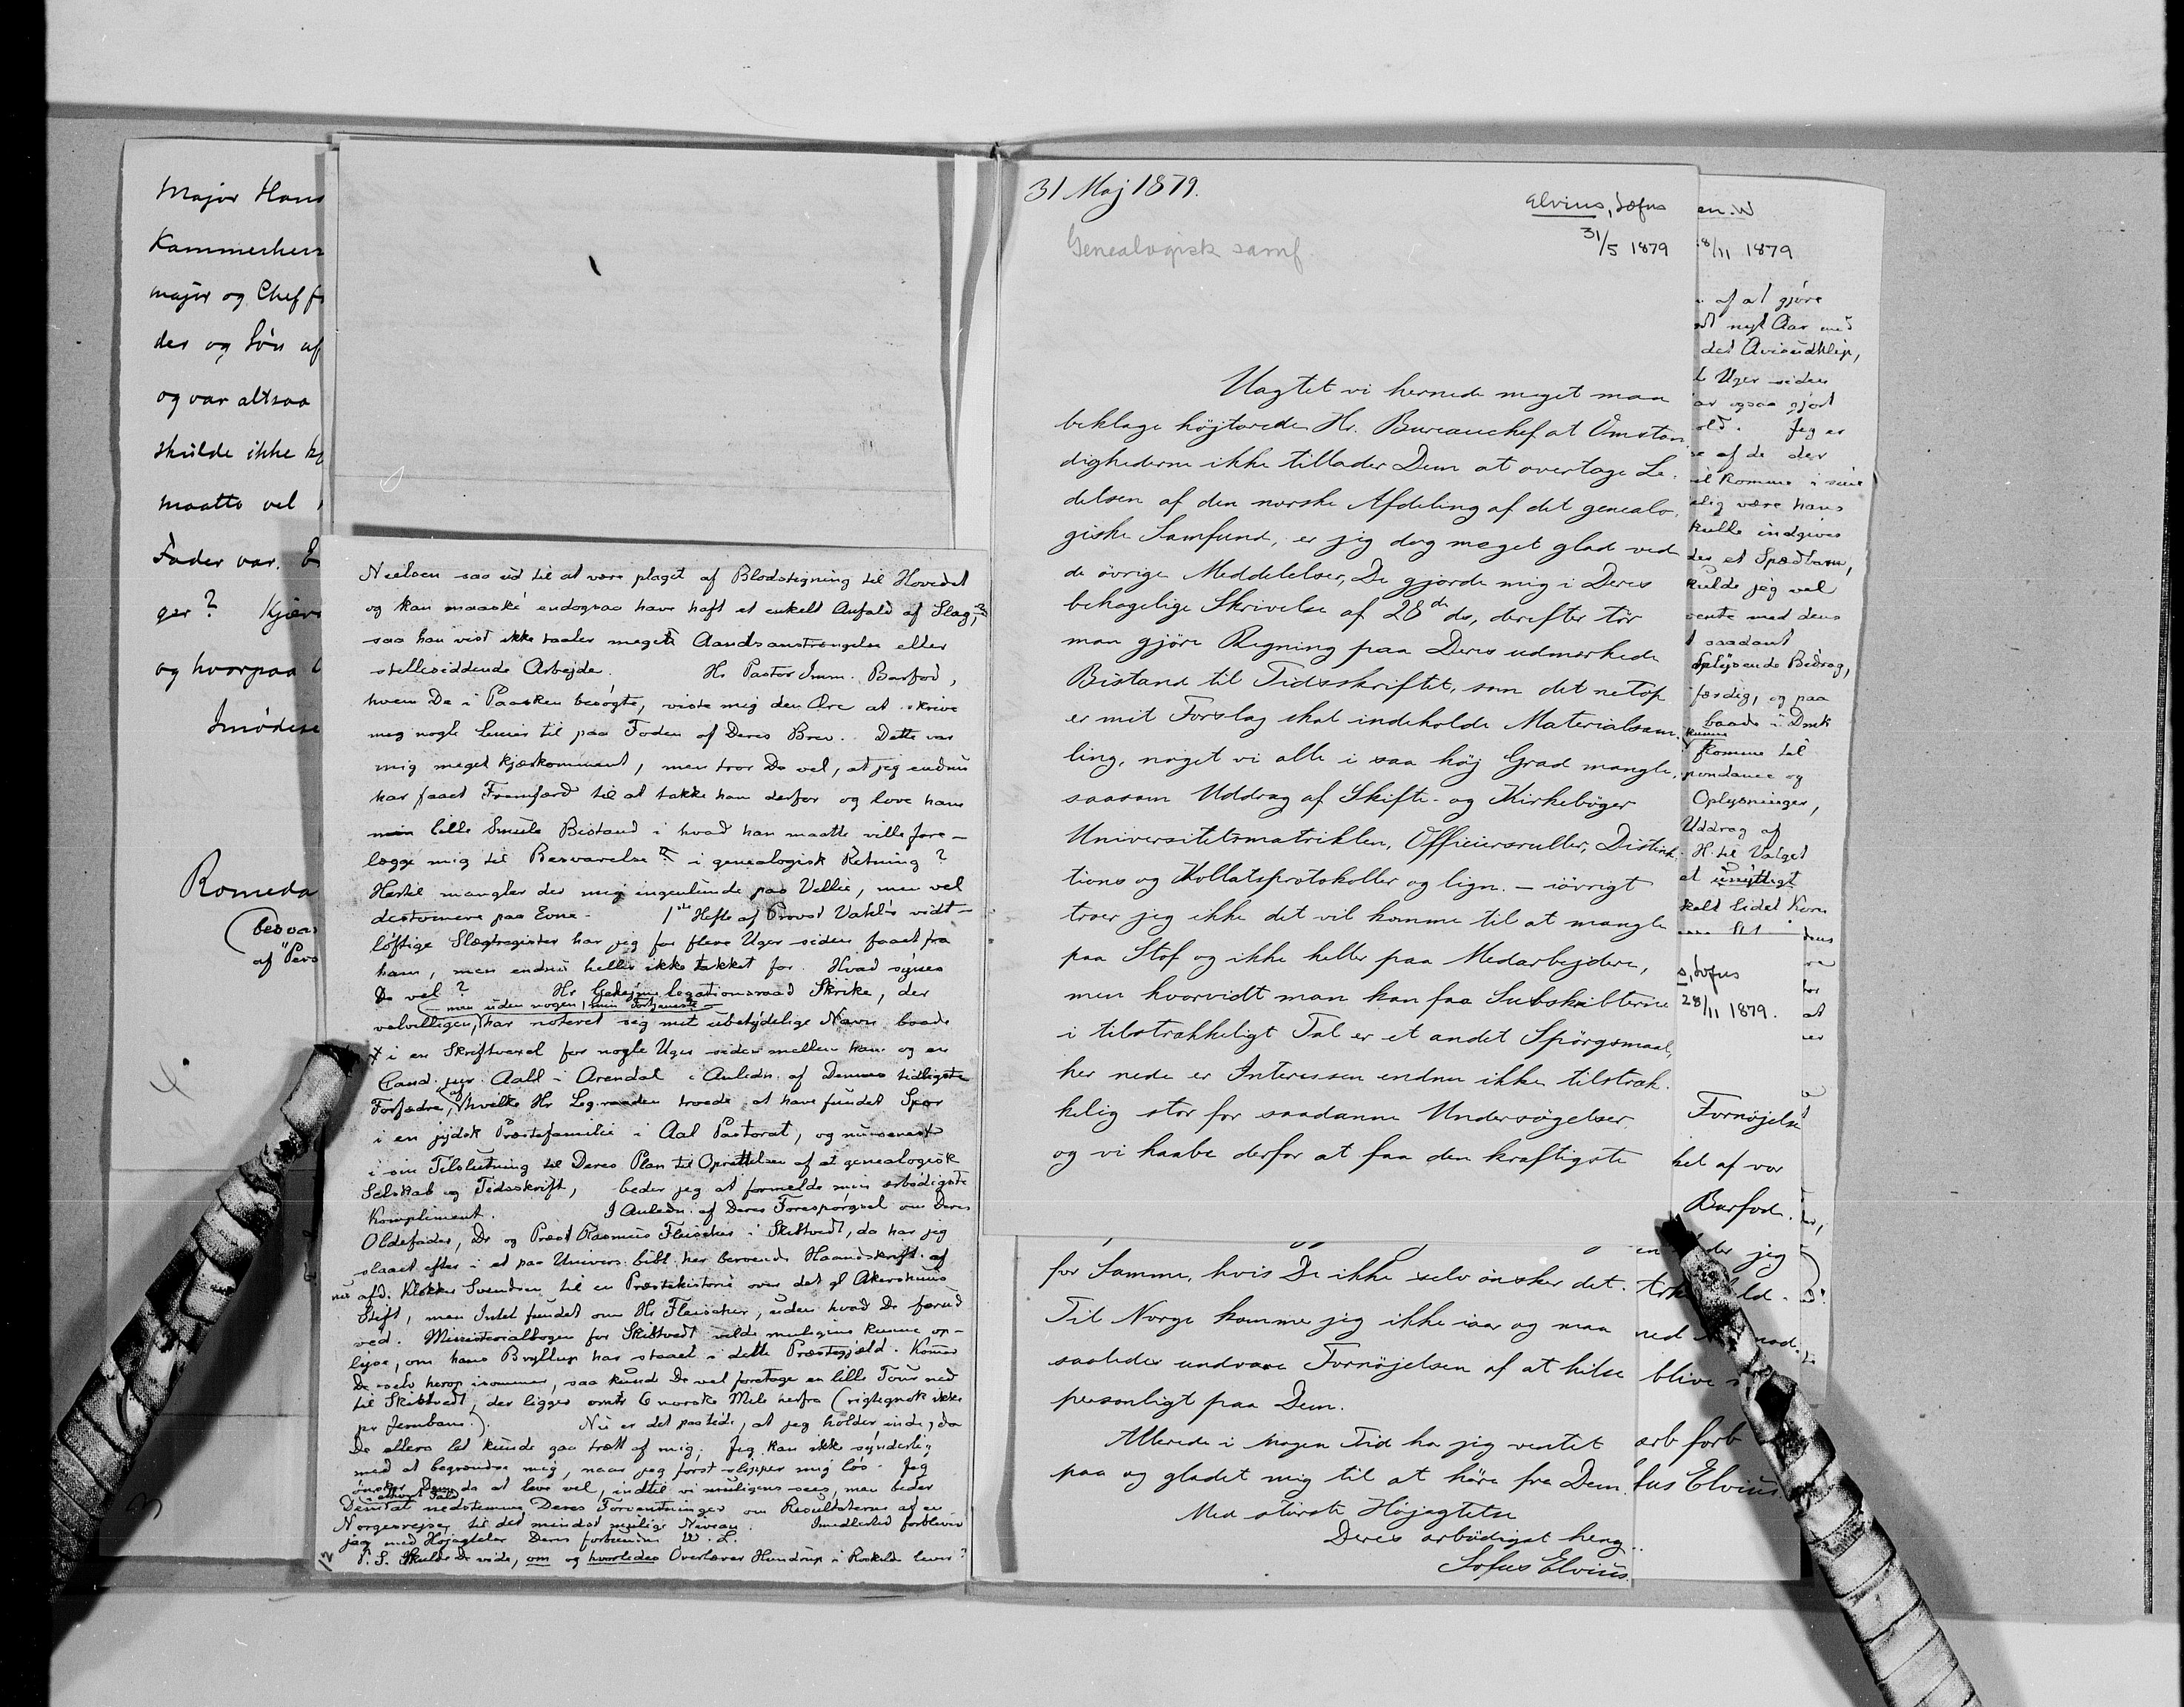 Major Hans
Kammerherr
major og Chef f
der og Søn af
og var altsaa
skulde ikke
maatte vel
Fader var.
ger? Kjær
og hvorpaa
Imødese
Romeda
(besva
af "Pers
Nielsen saa ud til at være plaget af Blodstigning til Hovedet
og kan maaské endogsaa have haft et enkelt Anfald af Slag,
saa han vist ikke taaler megen Aandsanstrengelse eller
stillesiddende Arbejde. Hr Pastor Imm. Barfod,
hvem De i Paasken besøgte, viste mig den Ære at skrive
mig nogle Linier til paa Foden af Deres Brev. Dette var
mig meget kjærkomment, men tror De vel, at jeg endnu
har faaet Fremfærd til at takke ham derfor og love ham
min lille Smule Bistand i hvad han maatte ville fore-
lægge mig til Besvarelse i genealogisk Retning?
Hertil mangler der mig ingenlunde paa Villie, men vel
destomere paa Evne. 1ste Hefte af Provst Vahl's vidt-
løftige Slægtregister har jeg for flere Uger siden faaet fra
ham, men endnu heller ikke takket for. Hvad synes
De vel? Hr Gehejmelegationsraad Skrike, der
men uden nogen, min Fortjeneste
velvilligen, har noteret sig mit ubetydelige Navn baade
i en Skriftvexel for nogle Uger siden mellem ham og en
Cand. jur. Aall i Arendal i Anledn. af Dennes tidligste
Forfædre, af hvilke Hr Leg.raaden troede at have fundet Spor
i en jydsk Præstefamilie i Aal Pastorat, og nu senest
i sin Tilslutning til Deres Plan til Oprettelsen af et genealogisk
Selskab og Tidsskrift, beder jeg at formelde min ærbødigste
Kompliment. I Anledn. af Deres Forespørgsel om Deres
Oldefader, Dr og Præst Rasmus Fleischer i Skibtvedt, da har jeg
slaaet efter i et paa Univers.bibl. her beroende Haandskrift af
nu afd. Klokker Svendsen til en Præstehistorie over det gl. Akershuus
Stift, men Intet fundet om Hr Fleischer, uden hvad De forud
ved. Ministerialbogen for Skibtvedt vilde muligens kunne op-
lyse, om hans Bryllup har staaet i dette Præstegjæld. Komer
De selv herop isommer, saa kunde De vel foretage en lille Tour ned
til Skibtvedt, der ligger omtr 6 norske Mile herfra (rigtignok ikke
pr Jernbane.) Nu er det paa tide, at jeg holder inde, da
De ellers let kunde gaa træt af mig. Jeg kan ikke synderlig
med at begrændse mig, naar jeg først slipper mig løs. Jeg
ønsker Dem da at leve vel, indtil vi muligens sees, men beder
Dem at nedstemme Deres Forventninger om Resultaterne af en
Norgesreise til det mindst mulige Niveau. Imedlertid forbliver
jeg med Højagtelse Deres forbundne W. L.
P. S. Skulde De vide, om og hvorledes Overlærer Hundrup i Roskilde lever?
12
31 Maj 1879.
Elvius, Sofus
31/5 1879
Genealogisk samf.
Uagtet vi hernede meget maa
beklage højtærede Hr. Bureauchef at Omstæn-
dighederne ikke tillader Dem at overtage Le-
delsen af den norske Afdeling af det genealo-
giske Samfund, er jeg dog meget glad ved
de øvrige Meddelelser, De gjorde mig i Deres
behagelige Skrivelse af 28de ds, derefter tør
man gjøre Regning paa Deres udmærkede
Bistand til Tidsskriftet, som det netop
er mit Forslag skal indeholde Materialsam-
ling, noget vi alle i saa høj Grad mangle,
saasom Uddrag af Skifte- og Kirkebøger
Universitetsmatriklen, Officiersruller, Distink-
tions og Kollatsprotokoller og lign. – iøvrigt
troer jeg ikke det vil komme til at mangle
paa Stof og ikke heller paa Medarbejdere,
men hvorvidt man kan faa Subskribterne
i tilstrækkeligt Tal er et andet Spørgsmaal,
her nede er Interessen endnu ikke tilstræk-
kelig stor for saadanne Undersøgelser
og vi haabe derfor at faa den kraftigste
for Samme, hvis De ikke selv ønsker det.
Til Norge kommer jeg ikke iaar og maa
saaledes undvære Fornøjelsen af at hilse
personligt paa Dem.
Allerede i nogen Tid har jeg ventet
paa og glædet mig til at høre fra Dem.
Med største Højagtelse
Deres ærbødigst heng.
Sofus Elvius.
en. W
8/11 1879
af at gjøre
nyt Aar med
det Avisudklip,
Uger siden
ar ogsaa gjort
old. Jeg er
se af de der
il Komme i sine
elig være hans
kulle indgives
des et Spædbarn,
kulde jeg vel
vente med dens
t saadant
Oplysende Bidrag,
færdig, og paa
baade i Druk
kunne
komme til
pondance og
Oplysninger,
Uddrag af
H. til Valget
et unyttigt
s, Sofus
28/11 1879.
Fornøjelse
het af vor
Barfod.
jeg
blive
ærb forb
fus Elvius.